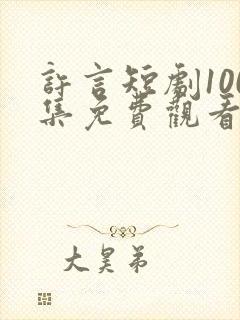 許言短劇100
集免費觀看
大昊弟